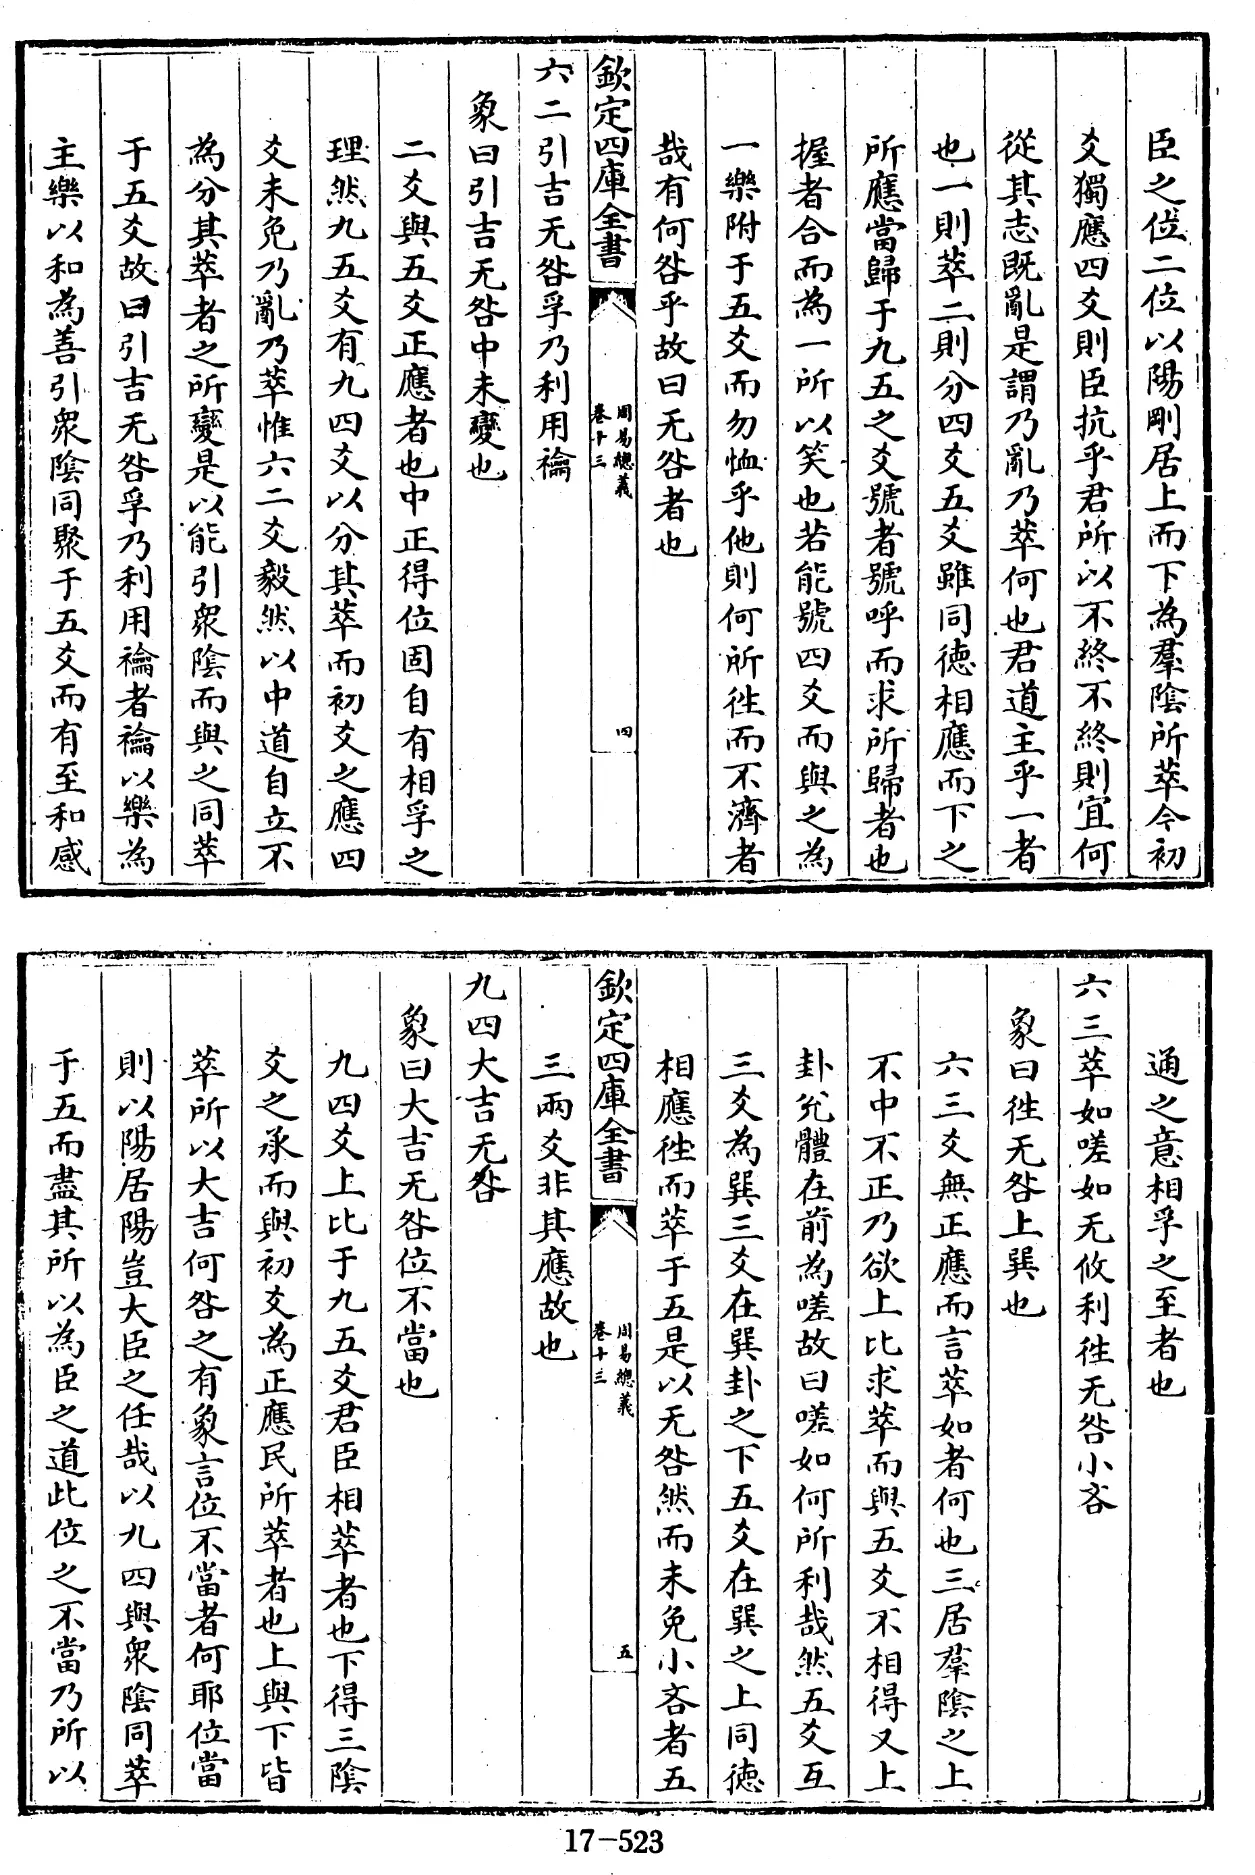 臣之位二位以陽剛居上而下為羣陰所萃今初
爻獨應四爻則臣抗乎君所以不終不終則宜何
從其志既亂是謂乃亂乃萃何也君道主乎一者
也一則萃二則分四爻五爻雖同徳相應而下之
所應當歸于九五之爻號者號呼而求所歸者也
握者合而為一所以笑也若能號四爻而與之為
一樂附于五爻而勿恤乎他則何所徃而不濟者
哉有何咎乎故曰无咎者也
欽定四庫全書
周易總義
卷十三
四
六二引吉无咎孚乃利用禴
象曰引吉无咎中未變也
二爻與五爻正應者也中正得位固自有相孚之
理然九五爻有九四爻以分其萃而初爻之應四
爻未免乃亂乃萃惟六二爻毅然以中道自立不
為分其萃者之所變是以能引衆陰而與之同萃
于五爻故曰引吉无咎孚乃利用禴者禴以樂為
主樂以和為善引衆陰同聚于五爻而有至和感
通之意相孚之至者也
六三萃如嗟如无攸利徃无咎小吝
象曰徃无咎上巽也
六三爻無正應而言萃如者何也三居羣陰之上
不中不正乃欲上比求萃而與五爻不相得又上
卦兊體在前為嗟故曰嗟如何所利哉然五爻互
三爻為巽三爻在巽卦之下五爻在巽之上同徳
相應徃而萃于五是以无咎然而未免小吝者五
欽定四庫全書
周易總義
卷十三
五
三兩爻非其應故也
九四大吉无咎
象曰大吉无咎位不當也
九四爻上比于九五爻君臣相萃者也下得三陰
爻之承而與初爻為正應民所萃者也上與下皆
萃所以大吉何咎之有象言位不當者何耶位當
則以陽居陽豈大臣之任哉以九四與衆陰同萃
于五而盡其所以為臣之道此位之不當乃所以
17-523